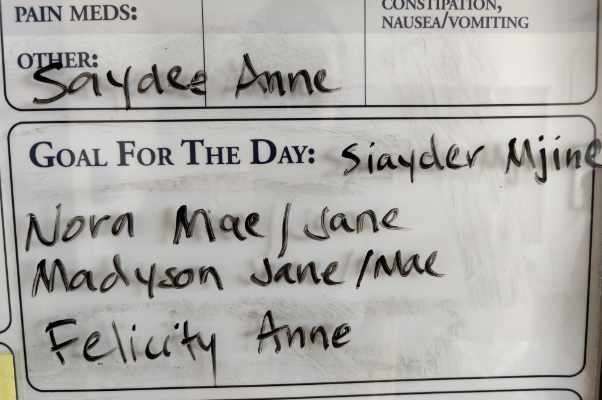 PAIN MEDS:
CONSTIPATION,
NAUSEA/VOMITING
OTHER:
Saydee Anne
GOAL FOR THE DAY: Siayder Mjine
Nora Mae/Jane
Madyson Jane/Mae
Felicity Anne